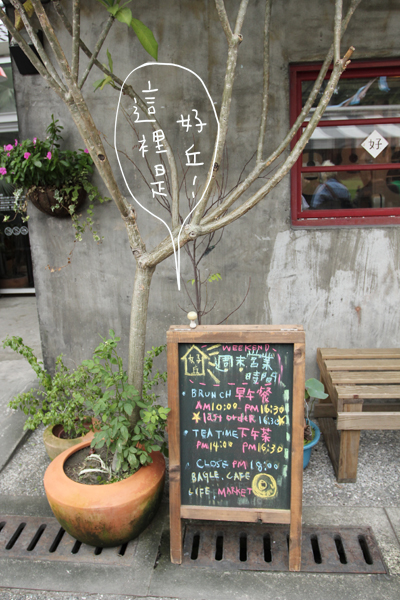 這裡是
好丘!
好
WEEKEND
週末營業
時間
BRUNCH 早午餐
AM 10:00 PM 16:30
★ last order 16:30 ★
TEA TIME 下午茶
PM 14:00 PM 16:30
CLOSE PM 18:00
BAGLE. CAFE
LIFE MARKET